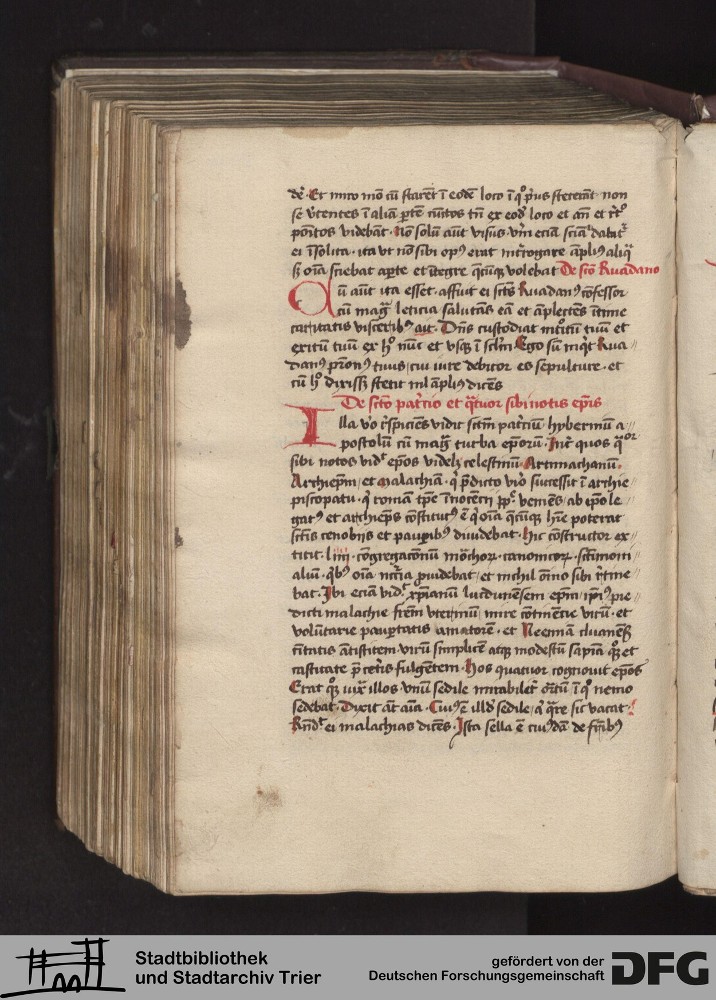 dē. Et miro mō cū starēt ī eodē loco ī q° p'us steterāt non
se v'tentes ī aliā ptē cūctos tn̄ ex eod' loco et an̄ et rt°
positos videbāt. Nō solū aūt visus vm̄ eciā sciā dabat'
ei īsolita. ita vt nō sibi opꝰ erat int'rogare āpliꝰ aliq'
sȝ oīa sciebat apte et ītegre q̄cūqꝫ volebat De scō Ruadano
Qū aūt ita esset. affuit ei sctꝰ Ruadanꝰ cōfessor
cū mag̃ leticia salutās eā et āplectēs ītime
caritatis visceribꝰ ait. Dn̄s custodiat int°itū tuū et
exitū tuū ex h° nūc et vsqꝫ ī sclm̄ Ego sū inq't Rua //
danꝰ pronꝰ tuus cui iure debitor es sepulture. et
cū h° dixissȝ stetit nl̄ āpliꝰ dicēs
De scō patricio et q̄tuor sibi notis ep̄is
Illa v'o r̄spiciēs vidit sctm̄ patriciū hyberniū a //
postolū cū mag̃ turba ep̄orū. Int' quos q°r
sibi notos vid' ep̄os videlȝ celestinū. Artinachanū.
Archiep̄m et malachiā. q' p̄dicto vi°o successit ī archie //
piscopatu. q' romā tp̄e īnocēti pp̄. veniēs ab ip̄o le //
gatꝰ et archiep̄s cōstitutꝰ ē q' oīa q̄cūqꝫ hr̄e poterat
sctīs cenobijs et paupibꝰ diuidebat. Hic cōstructor ex //
titit. liiii. cōgregacōnū mōchoꝝ. canonicoꝝ. sctīmoni //
aliū. q'bꝰ oīa nccīa puidebat et nichil oīno sibi r̄tine //
bat. Ibi eciā vid' xp̄ianū lucdunēsem ep̄m ip̄iꝰ pre //
dicti malachie frēm vterinū. mire cōtinēcie virū. et
volūtarie paupertatis amatorē. et Neemiā cluanēsȝ
cītatis ātistitem. virū simplicē atqꝫ modestū sapīa qꝫ et
castitate p̄ cetis fulgētem. Hos quatuor cognouit ep̄os
Erat qꝫ iux̄ illos vnū sedile mirabiliter ornatū ī q° nemo
sedebat. Dixit āt aīa. Cuiꝰ ē illd' sedile. et q̄re sic vacat.
Rn̄d' ei malachias dicēs. Ista sella ē cuiꝰdā de fr̄ibꝰ
Stadtbibliothek
und Stadtarchiv Trier
gefördert von der
Deutschen Forschungsgemeinschaft
DFG